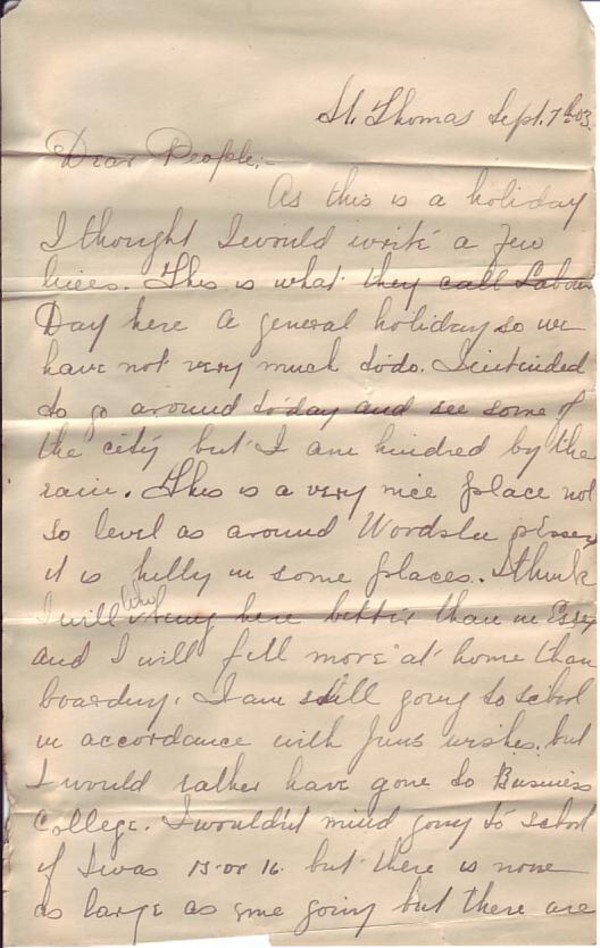 St. Thomas Sept. 7th 03.
Dear People:-
As this is a holiday
I thought I would write a few
lines. This is what they call Labour
Day here a general holiday so we
have not very much to do. I intended
to go around to day and see some of
the city but I am hindred by the
rain. This is a very nice place not
so level as around Wordslee
it is hilly in some places. I think
I will like being here better than in Essex
and I will fell more at home than
boarding. I am still going to school
in accordance with Jims wishes. but
I would rather have gone to Business
College. I wouldn't mind going to school
if I was 15 or 16. but there is none
as large as me going but there are